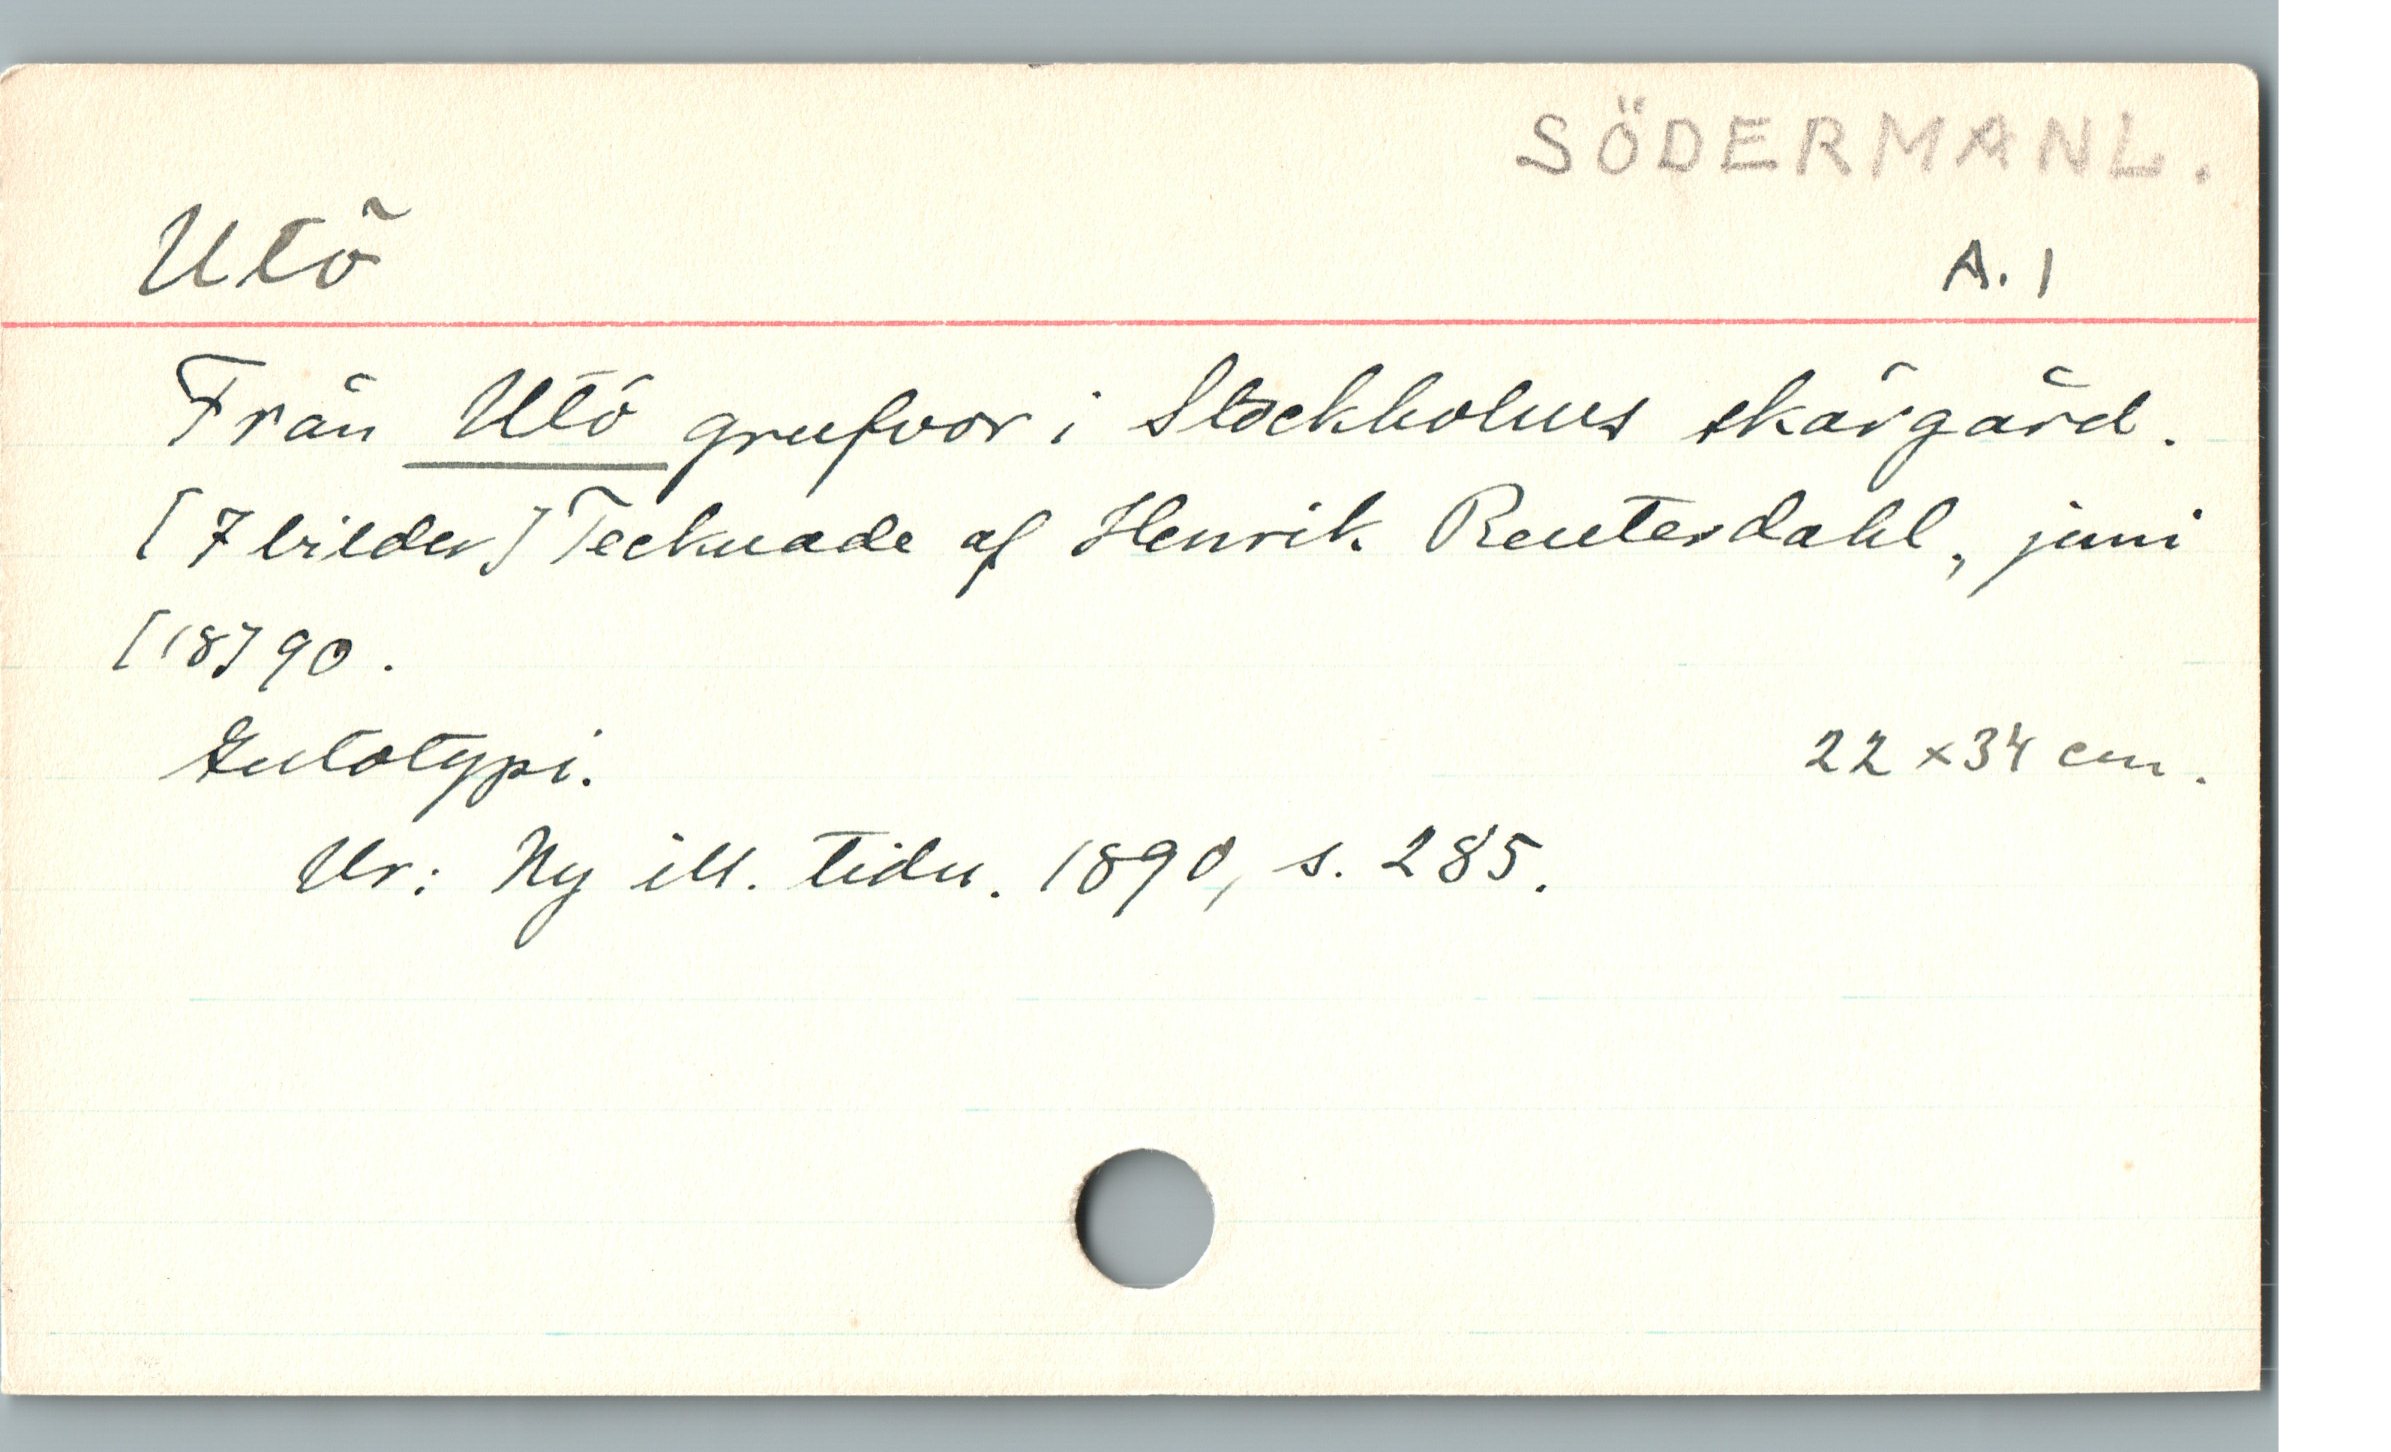 SÖDERMANL.
Utö
A. 1
Från Utö grufvor i Stockholms skärgård.
[7 bilder] Tecknade af Henrik Reuterdahl, juni
[18]90.
Autotypi.
22 x 34 cm.
Ur: Ny ill. tidn. 1890, s. 285.